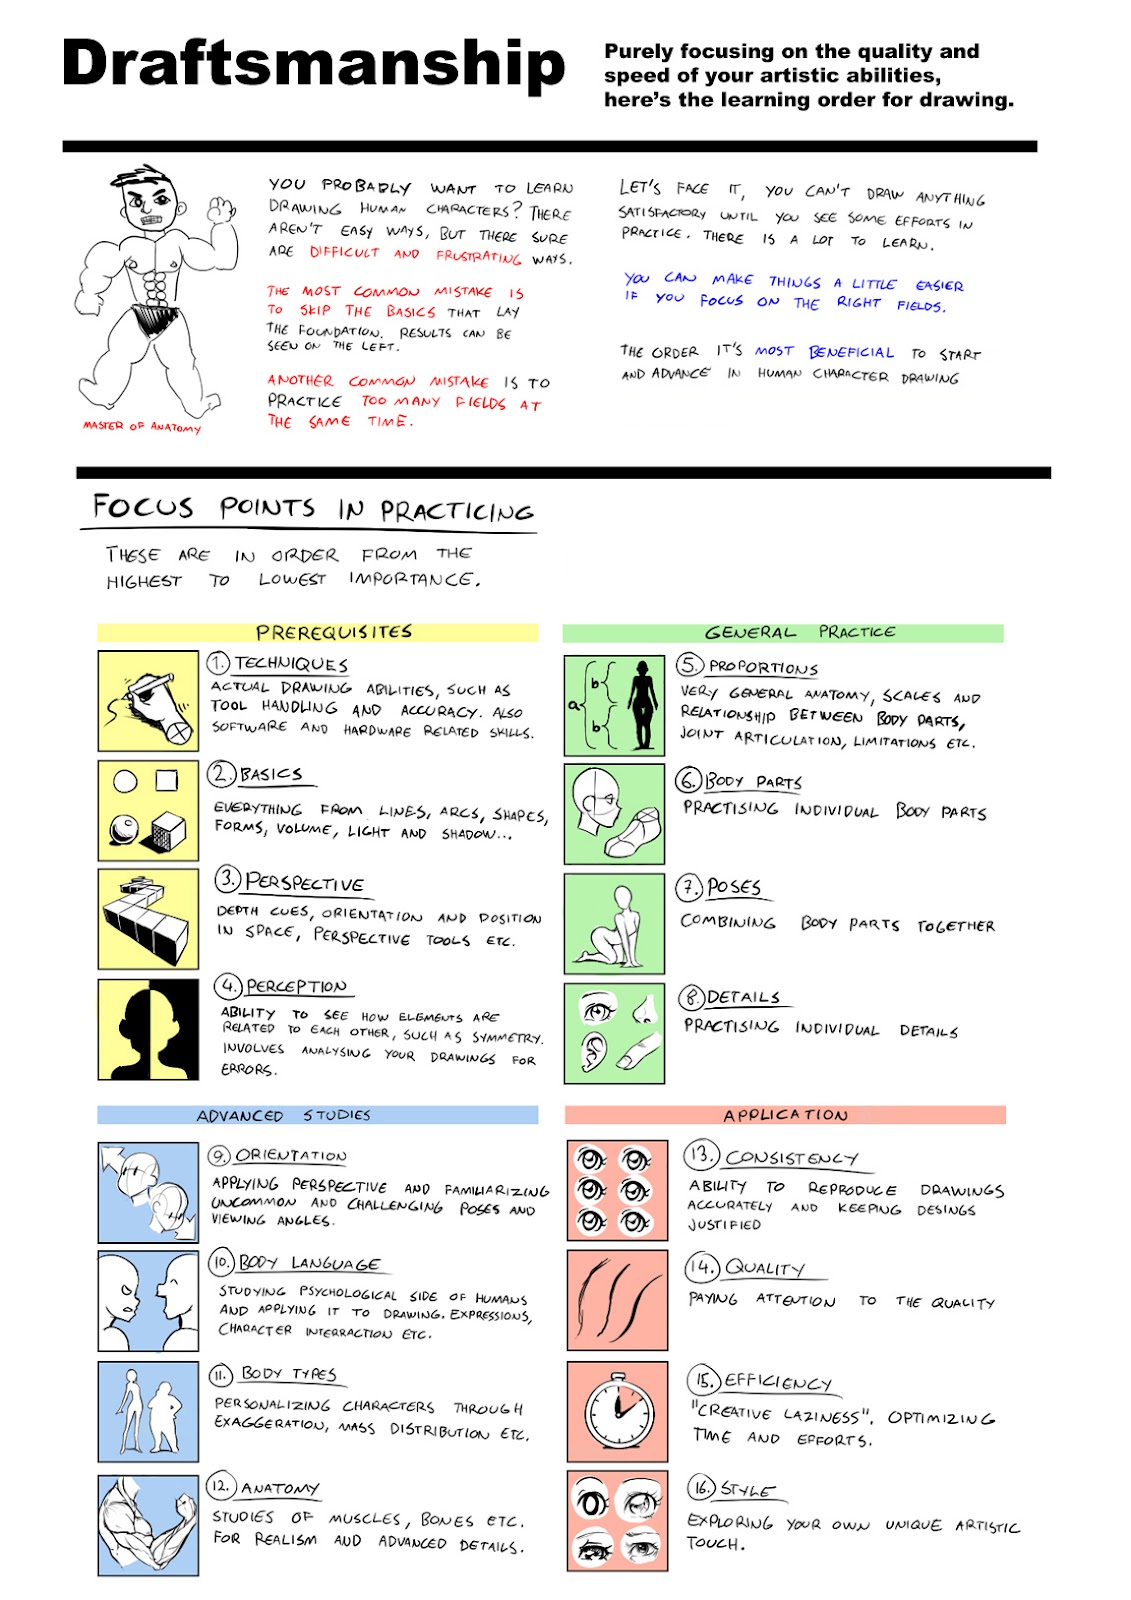 Draftsmanship
Purely focusing on the quality and
speed of your artistic abilities,
here's the learning order for drawing.
YOU PROBABLY WANT TO LEARN
DRAWING HUMAN CHARACTERS? THERE
AREN'T EASY WAYS, BUT THERE SURE
ARE DIFFICULT AND FRUSTRATING WAYS.
THE MOST COMMON MISTAKE IS
TO SKIP THE BASICS THAT LAY
THE FOUNDATION. RESULTS CAN BE
SEEN ON THE LEFT.
ANOTHER COMMON MISTAKE IS TO
PRACTICE TOO MANY FIELDS AT
THE SAME TIME.
MASTER OF ANATOMY
LET'S FACE IT, YOU CAN'T DRAW ANYTHING
SATISFACTORY UNTIL YOU SEE SOME EFFORTS IN
PRACTICE. THERE IS A LOT TO LEARN.
YOU CAN MAKE THINGS A LITTLE EASIER
IF YOU FOCUS ON THE RIGHT FIELDS.
THE ORDER IT'S MOST BENEFICIAL TO START
AND ADVANCE IN HUMAN CHARACTER DRAWING
FOCUS POINTS IN PRACTICING
THESE ARE IN ORDER FROM THE
HIGHEST TO LOWEST IMPORTANCE.
PREREQUISITES
1. TECHNIQUES
ACTUAL DRAWING ABILITIES, SUCH AS
TOOL HANDLING AND ACCURACY. ALSO
SOFTWARE AND HARDWARE RELATED SKILLS.
2. BASICS
EVERYTHING FROM LINES, ARCS, SHAPES,
FORMS, VOLUME, LIGHT AND SHADOW...
3. PERSPECTIVE
DEPTH CUES, ORIENTATION AND POSITION
IN SPACE, PERSPECTIVE TOOLS ETC.
4. PERCEPTION
ABILITY TO SEE HOW ELEMENTS ARE
RELATED TO EACH OTHER, SUCH AS SYMMETRY.
INVOLVES ANALYSING YOUR DRAWINGS FOR
ERRORS.
GENERAL PRACTICE
a b b
5. PROPORTIONS
VERY GENERAL ANATOMY, SCALES AND
RELATIONSHIP BETWEEN BODY PARTS,
JOINT ARTICULATION, LIMITATIONS ETC.
6. BODY PARTS
PRACTISING INDIVIDUAL BODY PARTS
7. POSES
COMBINING BODY PARTS TOGETHER
8. DETAILS
PRACTISING INDIVIDUAL DETAILS
ADVANCED STUDIES
9. ORIENTATION
APPLYING PERSPECTIVE AND FAMILIARIZING
UNCOMMON AND CHALLENGING POSES AND
VIEWING ANGLES.
10. BODY LANGUAGE
STUDYING PSYCHOLOGICAL SIDE OF HUMANS
AND APPLYING IT TO DRAWING. EXPRESSIONS,
CHARACTER INTERRACTION ETC.
11. BODY TYPES
PERSONALIZING CHARACTERS THROUGH
EXAGGERATION, MASS DISTRIBUTION ETC.
12. ANATOMY
STUDIES OF MUSCLES, BONES ETC.
FOR REALISM AND ADVANCED DETAILS.
APPLICATION
13. CONSISTENCY
ABILITY TO REPRODUCE DRAWINGS
ACCURATELY AND KEEPING DESINGS
JUSTIFIED
14. QUALITY
PAYING ATTENTION TO THE QUALITY
15. EFFICIENCY
"CREATIVE LAZINESS". OPTIMIZING
TIME AND EFFORTS.
16. STYLE
EXPLORING YOUR OWN UNIQUE ARTISTIC
TOUCH.